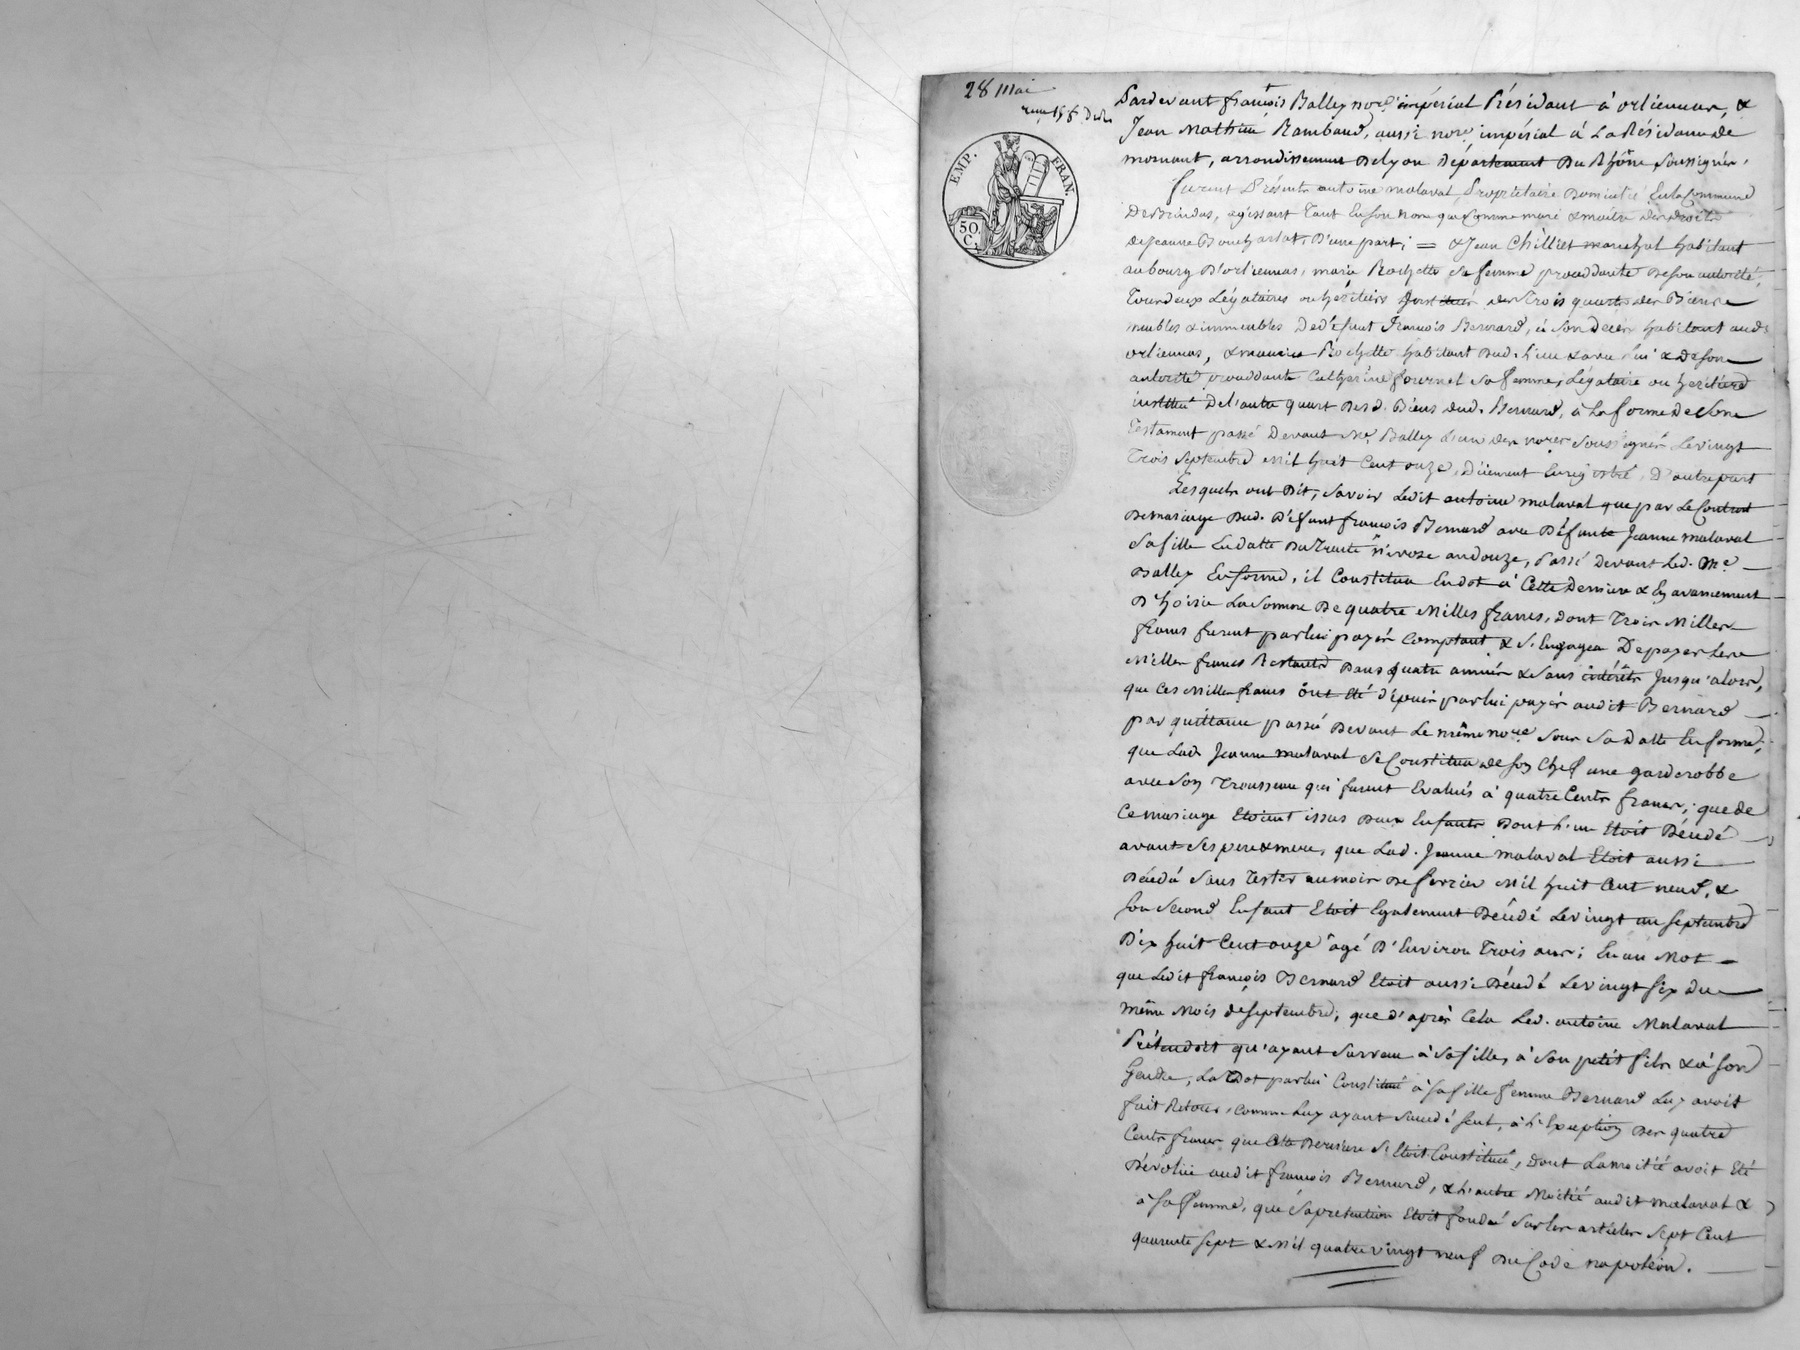 28 Mai
Pardevant françois Balley no.re impérial Résidant à orlienas, &
Jean Mathieu Rambaud, aussi no.re impérial à La Résidence de
mornant, arrondissement De Lyon Département Du Rhône soussignés,
furent Présents antoine malaval, Propriétaire Domicilié En la Commune
De Brindas, agissant Tant En son nom que Comme mari & maître des droits
de jeanne Boucharlat, D'une part; = & Jean Chilliet marechal habitant
au bourg D'orlienas, marie Rochette sa femme procédante De son autorité,
Tous deux Légataires ou héritiers institués des Trois quarts des Biens
meubles & immeubles De défunt François Bernard, à son décès habitant aud.
orlienas, & maurice Rochette habitant Dud. lieu & avec Lui & De son
autorité procédante Catherine fournel sa femme, Légataire ou heritière
instituée De l'autre quart Desd. Biens dud. Bernard, à La forme De son
Testament passé Devant Me. Balley L'un des no.res Soussignés Le vingt
Trois Septembre Mil huit Cent onze, Düement Enregistré, D'autre part
Lesquels ont Dit, savoir Ledit antoine malaval que par Le Contrat
De mariage Dud. Défunt françois Bernard avec Défunte Jeanne malaval
Sa fille En datte Du Trente nivose an douze, Passé Devant Led. Me.
Balley En forme, il Constitua En dot à Cette Derniere & En avancement
D'hoirie La Somme De quatre Milles francs, dont Trois Milles
francs furent par lui payés comptant & S'Engagea De payer Les
Milles francs Restants Dans quatre années & Sans intérêts Jusqu'alors,
que Ces Milles francs ont Eté depuis par lui payés audit Bernard
par quittance passée Devant Le même no.re sous Sa Datte En forme;
que Lad. Jeanne malaval se Constitua de son Chef une garderobbe
avec Son Trousseau qui furent Evalués à quatre Cents francs; que de
Ce mariage Etoient issus Deux Enfants Dont L'un Etoit Décédé
avant Ses pere & mere, que Lad. Jeanne malaval Etoit aussi
Décédé Sans Tester au mois De fevrier Mil huit Cent neuf, &
Son Second Enfant Etoit Egalement Décédé Le vingt un Septembre
Dix huit Cent onze âgé D'Environ Trois ans; En un Mot
que Ledit françois Bernard Etoit aussi Décédé Le vingt six du
même Mois de septembre; que d'après Cela Led. antoine Malaval
Prétendoit qu'ayant Survécu à Sa fille, à Son petit fils & à Son
Gendre, La Dot par lui Constituée à Sa fille femme Bernard Luy avoit
fait Retour, comme Luy ayant Succédé Seul, à L'Exception Des quatre
Cents francs que Cette Derniere S'Etoit Constituée, dont La moitié avoit Eté
Dévolüe audit françois Bernard, & L'autre Moitié audit malaval &
à Sa femme, que Sa pretention Etoit fondée Sur les articles Sept Cent
quarante Sept & Mil quatre vingt neuf Du Code napoléon.
EMP. FRAN.
50.
C.